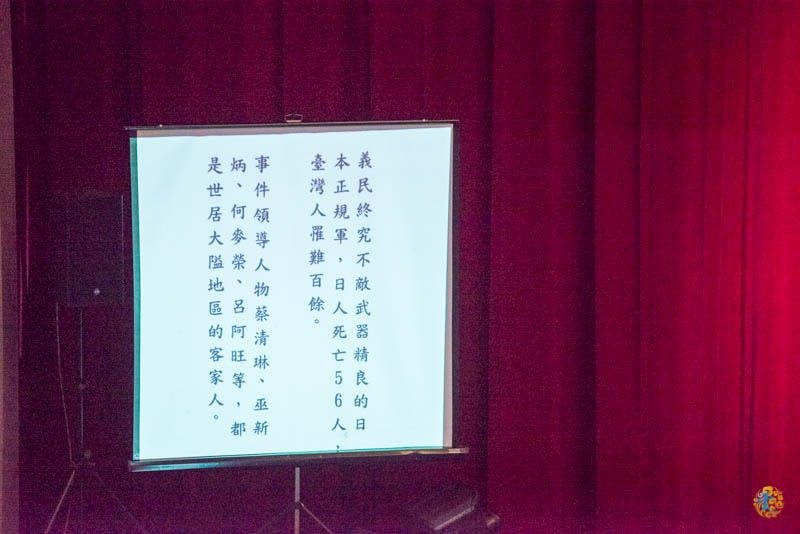 義民終究不敵武器精良的日
本正規軍，日人死亡56人，
臺灣人罹難百餘。
事件領導人物蔡清琳、巫新
炳、何麥榮、呂阿旺等，都
是世居大隘地區的客家人。